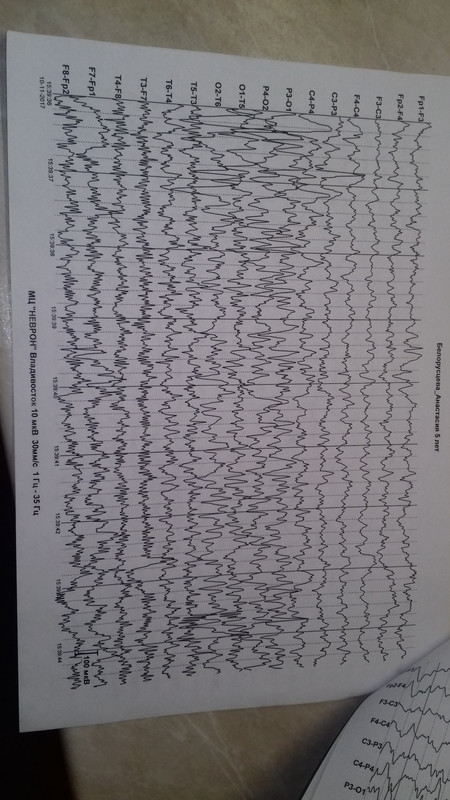 Белорусцева_Анастасия 5 лет
Fp1-F3
Fp2-F4
F3-C3
F4-C4
C3-P3
C4-P4
P3-O1
P4-O2
O1-T5
O2-T6
T5-T3
T6-T4
T3-F7
T4-F8
F7-Fp1
F8-Fp2
15:39:36
10-11-2017
15:39:37
15:39:38
15:39:39
15:39:40
15:39:41
15:39:42
15:39:44
100 мкВ
МЦ "НЕВРОН" Владивосток 10 мкВ 30мм/с 1 Гц - 35 Гц
Fp2-F4
F3-C3
F4-C4
C3-P3
C4-P4
P3-O1